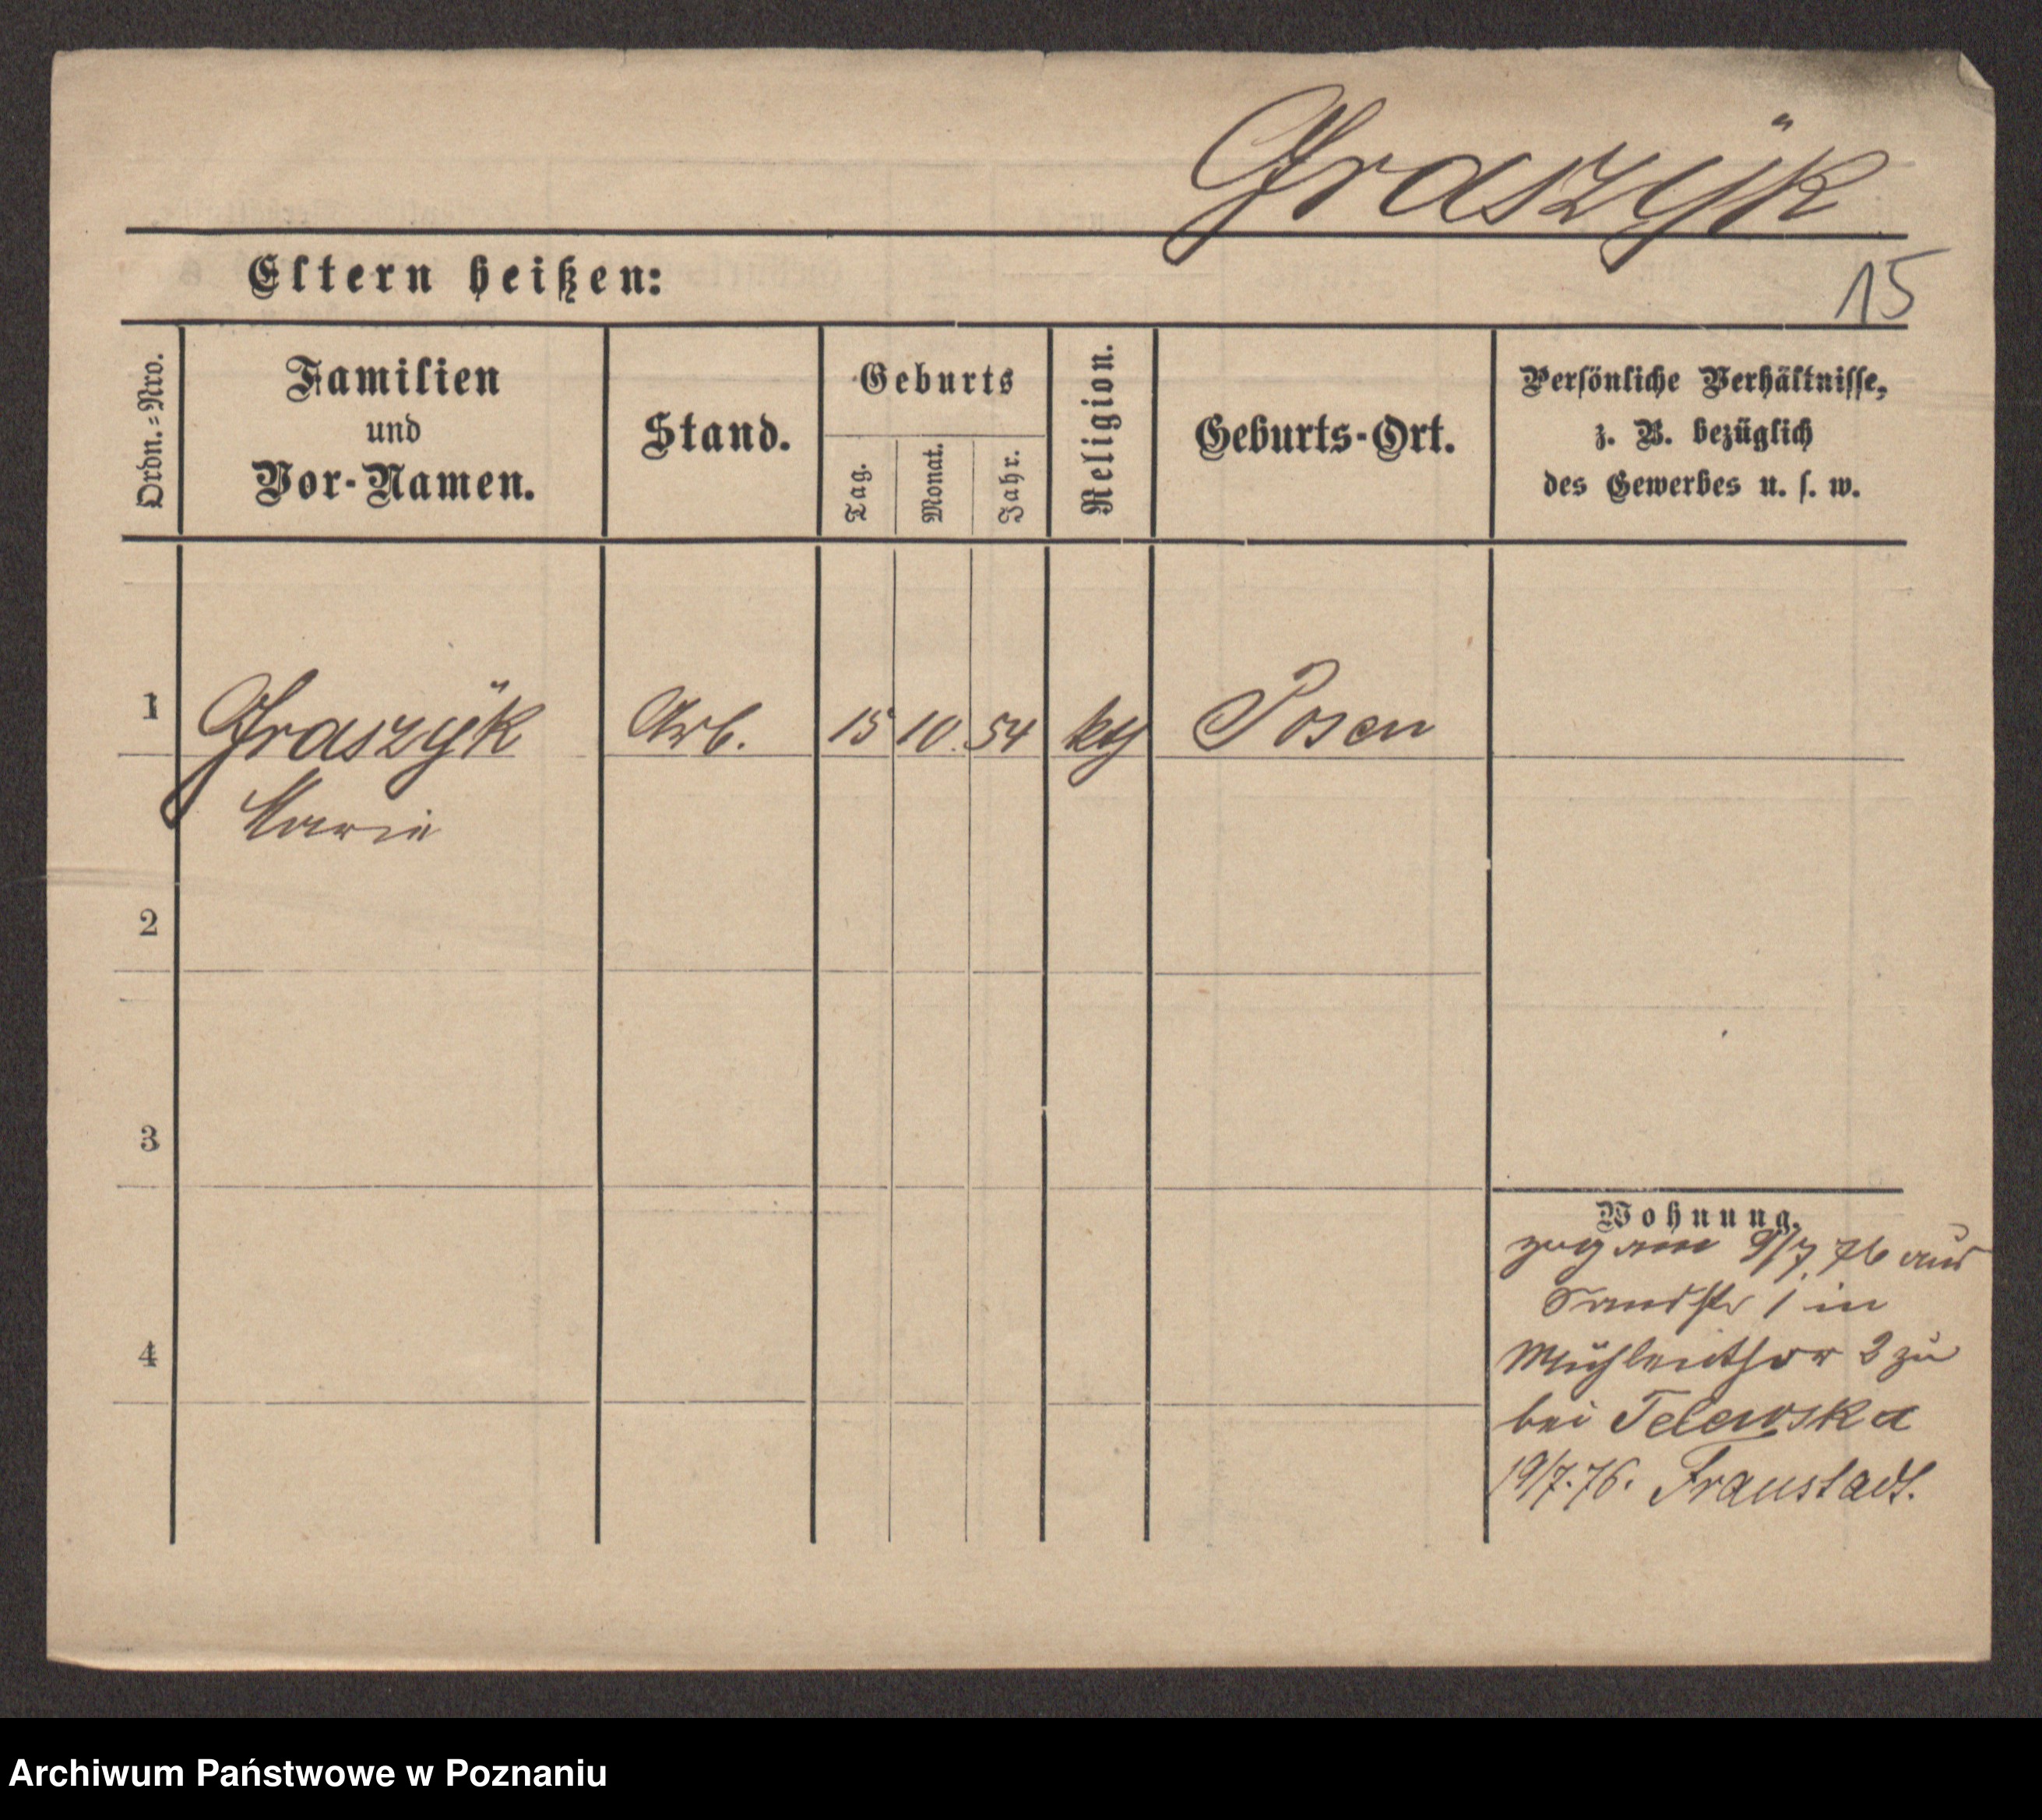 Graszÿk
15
Eltern heißen:
Ordn.=Nro.
Familien
und
Vor-Namen.
Stand.
Geburts
Tag.
Monat.
Jahr.
Religion.
Geburts-Ort.
Persönliche Verhältnisse,
z. B. bezüglich
des Gewerbes u. s. w.
1
Graszÿk
Arb.
15
10.
54
kth
Posen
Marie
2
3
4
Wohnung.
zog am 9/7 76 aus
Sandstr 1 in
Mühlenthor 2 zu
bei Telewska
19/7.76. Fraustadt.
Archiwum Państwowe w Poznaniu